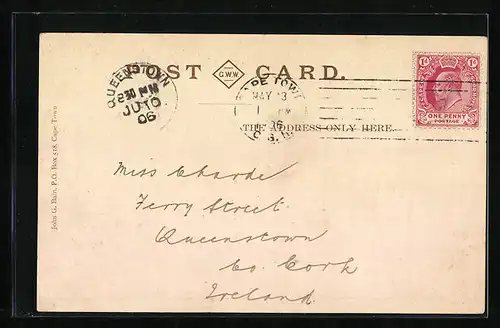 POST CARD.
G.W.W.
QUEENSTOWN
2 30 PM
JU 10
06
CAPE TOWN
MAY 3
06
THE ADDRESS ONLY HERE.
1d 1d
ONE PENNY
POSTAGE
John G. Bain, P.O. Box 418, Cape Town
Miss
Ferry Street
Queenstown
Co. Cork
Ireland